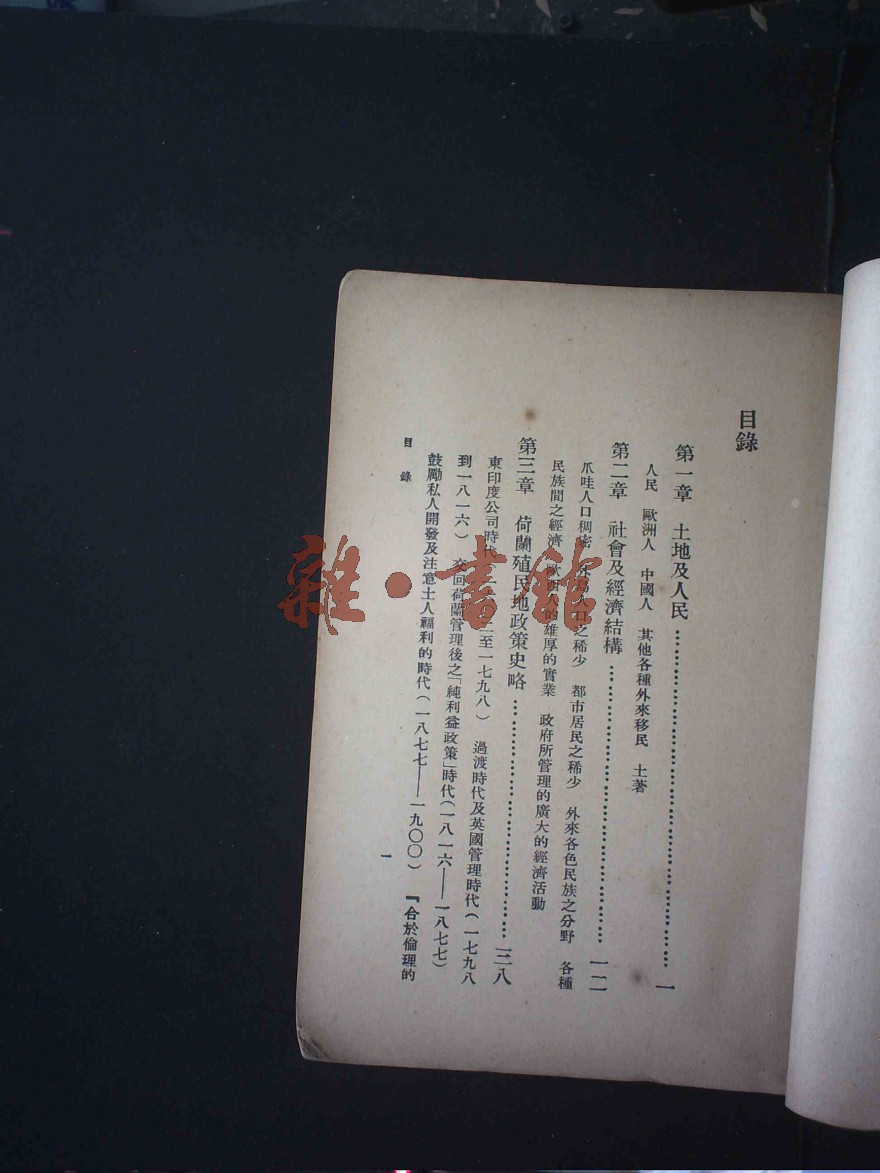 目錄
第一章　土地及人民…………一
人民　歐洲人　中國人　其他各種外來移民　土著
第二章　社會及經濟結構…………一二
爪哇人口稠密　外島人口之稀少　都市居民之稀少　外來各色民族之分野　各種
民族間之經濟　歐西人的雄厚的實業　政府所管理的廣大的經濟活動
第三章　荷蘭殖民地政策史略…………三八
東印度公司時代　至一七九八）　過渡時代及英國管理時代（一七九八
到一八一六）　交回荷蘭管理後之「純利益政策」時代（一八一六——一八七七）
鼓勵私人開發及注意土人福利的時代（一八七七——一九〇〇）　『合於倫理的
目錄
一
雜·書館